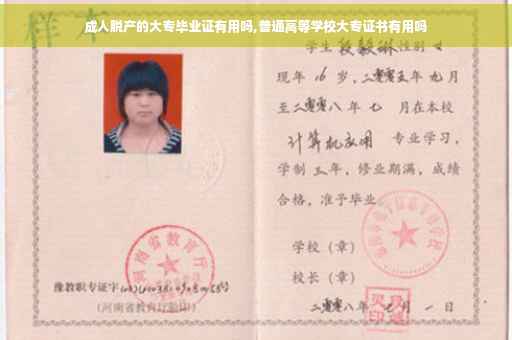 成人脱产的大专毕业证有用吗,普通高等学校大专证书有用吗
样本
学生段毅琳性别女
现年16岁,二零零五年九月
至二零零八年七月在本校
计算机应用 专业学习,
学制三年,修业期满,成绩
合格,准予毕业
学校(章)
校长(章)
二零零八年七月一日
河南省教育厅
豫教职专证字
(河南省教育厅验印)